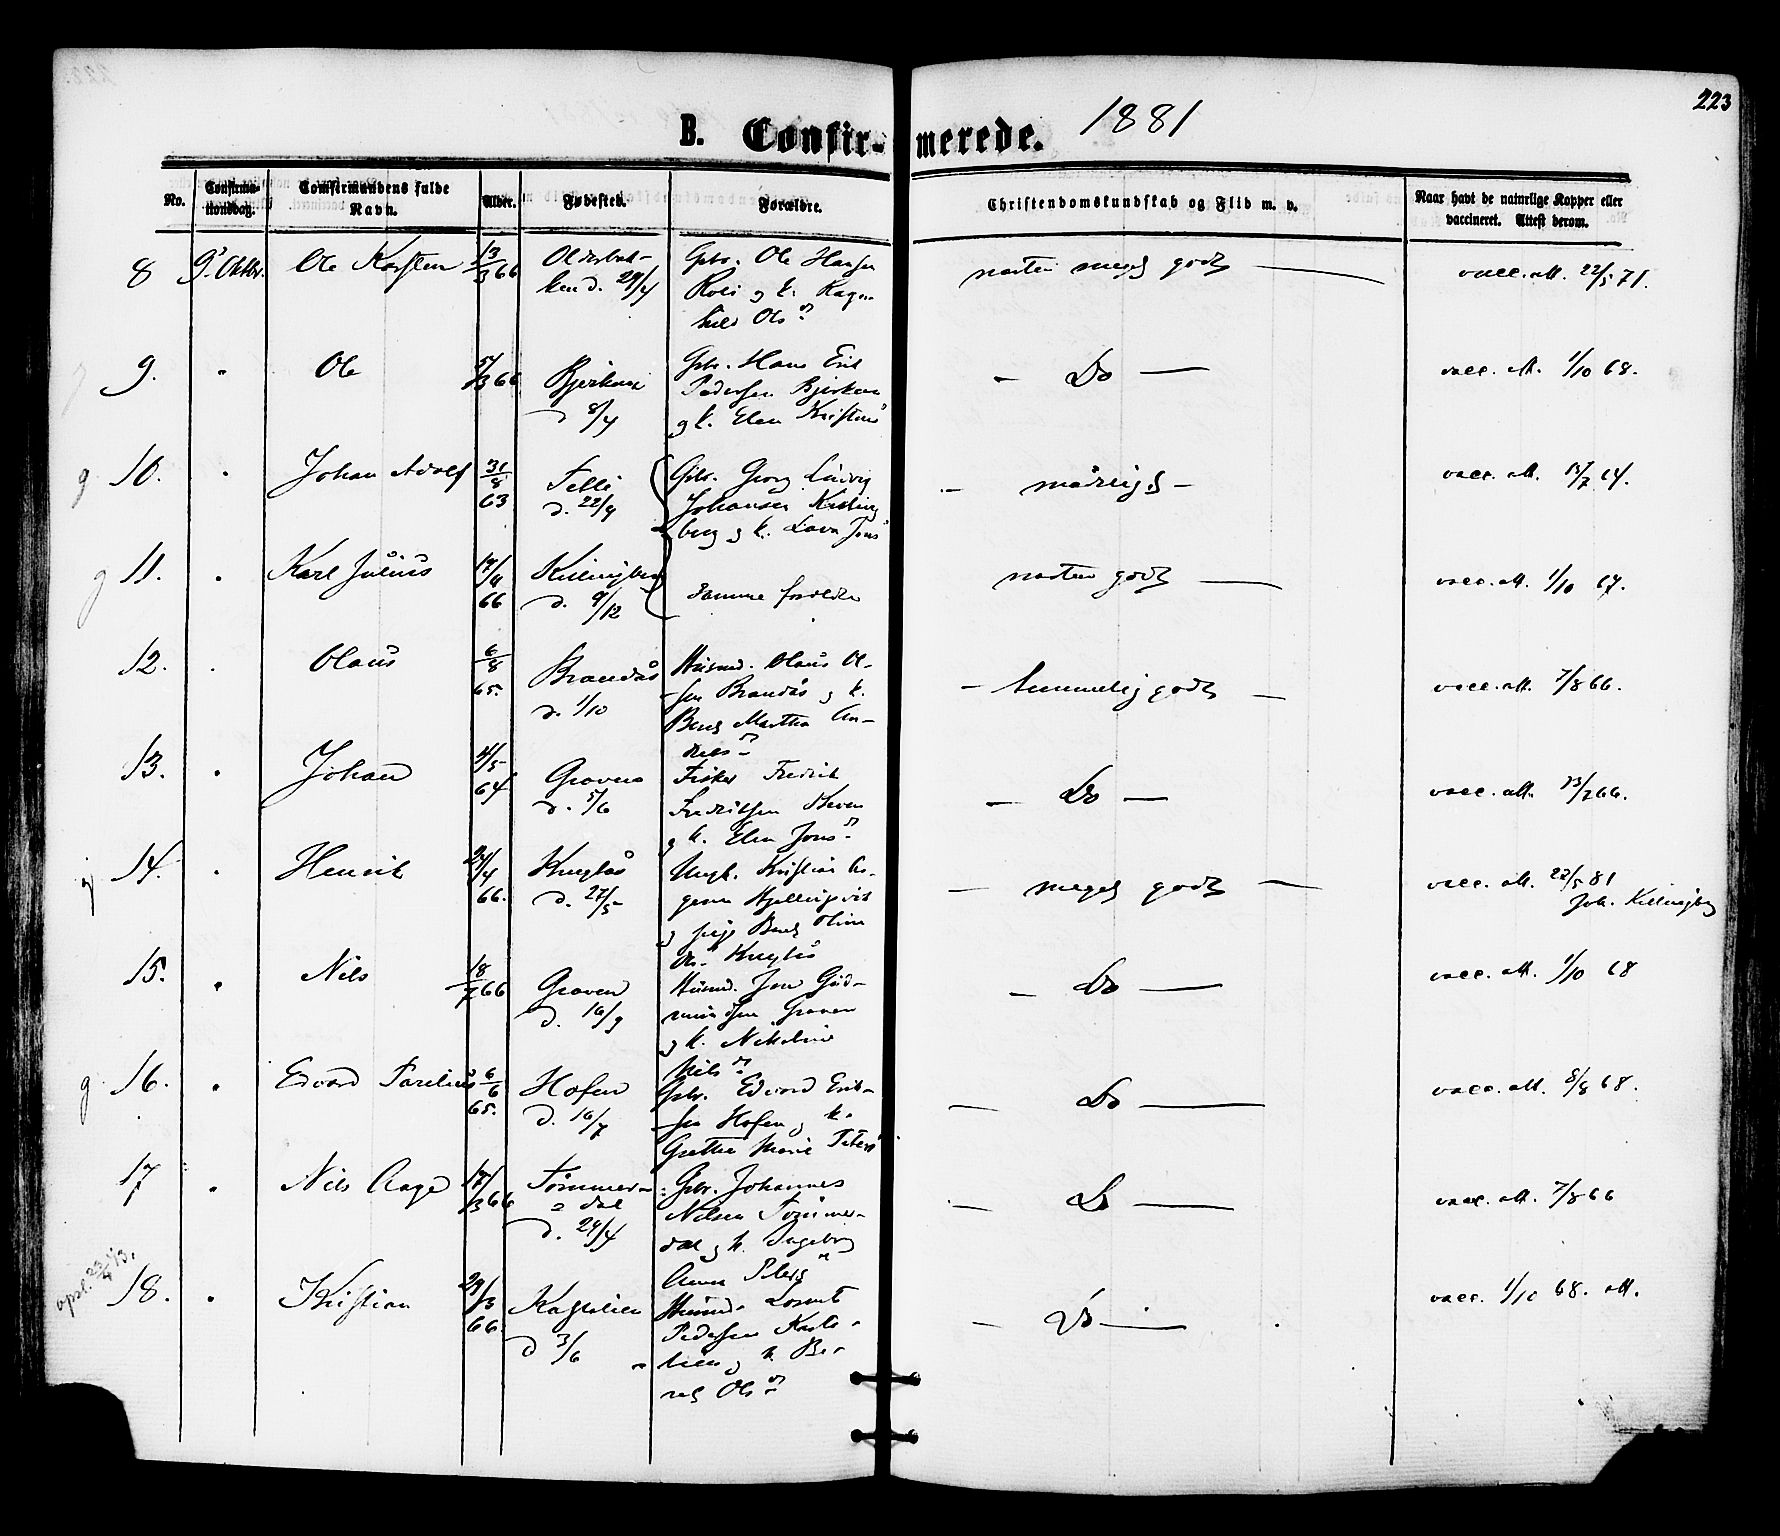 223
B. Confirmerede. 1881
No.
Confirma-
tionsdag.
Comfirmandens fulde
Navn.
Alder.
Fødested.
Forældre.
Christendomskundskab og Flid m. v.
Naar havt de naturlige Kopper eller
vaccineret. Attest derom.
8 9' Oktbr. Ole Karsten 13/3 66
d. 29/4
Gbr. Ole Hansen
g k. Ragn-
hild Ols d
næsten meget godt —
vacc. att. 22/5 71.
9. " Ole 5/3 66
Bjerkan
d 8/4
Gbr. Hans Erik
Pedersen Bjerkan
g k. Elen Kristens d
— Do —
vacc. att. 1/10 68.
g 10. " Johan Adolf 31/8 63
Selli
d. 22/9
Gbr. Georg Ludvig
Johansen Killing
berg g k. Lava Jons d
— mådeligt —
vacc. att. 13/7 64.
g 11. " Karl Julius 17/9 66
Killingberg
d. 9/12
Samme forældre
næsten godt —
vacc. att. 1/10 67.
12. " Olaus 6/8 65.
Brandås
d. 1/10
Husmd. Olaus Ol-
sen Brandås g k.
Beret Martha An-
— temmelig godt —
vacc. att. 7/8 66.
13. " Johan 4/5 64
Graven
d. 5/6
Fisker Fredrik
Fredriksen
g k. Elen Jons d
— Do —
vacc. att. 13/7 66.
14. " Henrik 24/4 66.
Knuglås
d. 27/5
Ungk. Kristian
g pige Beret Oline
Ols d Knuglås
— meget godt —
vacc. att. 22/5 81
Joh. Killingberg
15. " Nils 18/7 66
Graven
d. 16/9
Husmd. Jon Gud-
mundsen Graven
g k. Nikoline
Nils d
— Do —
vacc. att. 1/10 68
g 16. " Edvard Parelius 6/6 65.
Hofen
d. 16/7
Gbr. Edvard Erik-
sen Hofen g k.
Grethe Marie Peters d
— Do —
vacc. att. 8/8 68.
17 " Nils Aage 17/3 66
Tømmer-
dal
d. 29/4
Gbr. Johannes
Nilsen Tømmer-
dal g k. Ingeborg
Anna Peters d
— Do —
vacc. att. 7/8 66
opsl. 23/4 13.
18. " Kristian 29/3 66.
Kastelien
d 3/6
Husmd. Lorents
Pedersen Kaste-
lien g k. Be-
ret Ols d
— Do —
vacc. 1/10 68. att.